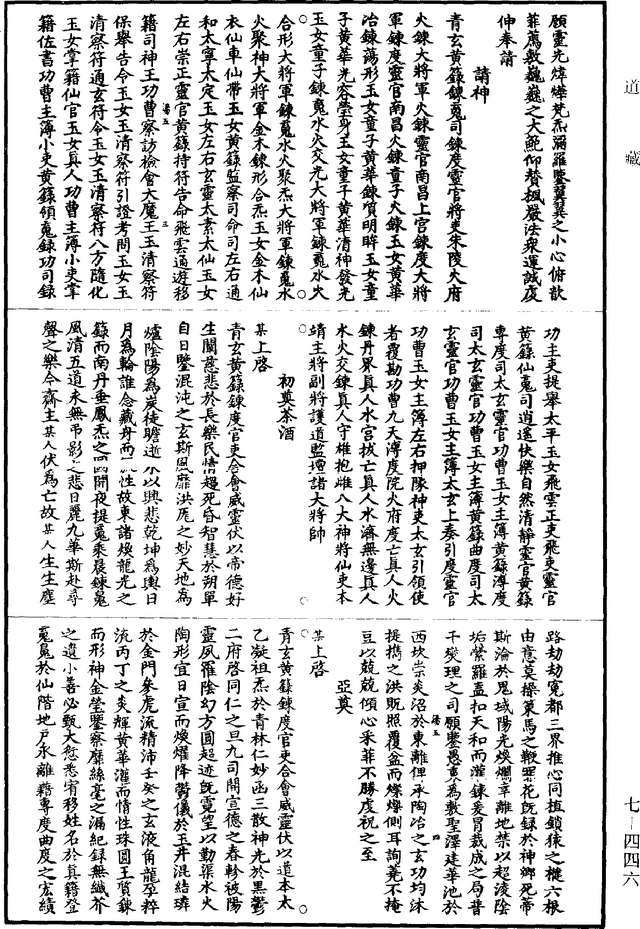 道藏
願靈光煒燁梵炁彌羅鑒翼翼之小心俯歆
菲薦敷巍巍之大範仰贊楓嚴法眾運誠虔
伸奉請
請神
青玄黃籙鍊魂司鍊度靈官將吏朱陵火府
火鍊大將軍火鍊靈官南昌上宮鍊度大將
軍鍊度靈官南昌火鍊童子火鍊玉女黃華
冶鍊蕩形玉女童子黃華鍊質明眸玉女童
子黃華光容瑩身玉女童子黃華清神發光
玉女童子鍊魂水火交光大將軍鍊魂水火
合形大將軍鍊魂水火聚炁大將軍鍊魂水
火聚神大將軍金木鍊形合炁玉女金木仙
衣仙車仙帶玉女黃籙監察司命司左右通
和太寧太定玉女左右玄靈太素太仙玉女
左右崇正靈官黃籙持符告命飛雲通遊移
籍司神王功曹察訪檢會大魔王玉清察符
保舉告令玉女玉清察符引證考問玉女玉
清察符通玄符令玉女玉清察符八方隨化
玉女掌籍仙官玉女真人功曹主簿小吏掌
籍佐書功曹主簿小吏黃籙領魂錄功司錄
功主吏提舉太平玉女飛雲正吏飛吏靈官
黃籙仙魂司逍遙快樂自然清靜靈官黃籙
專度司太玄靈官功曹玉女主簿黃籙溥度
司太玄靈官功曹玉女主簿黃籙曲度司太
玄靈官功曹玉女主簿太玄上奏引度靈官
功曹玉女主簿左右押隊神吏太玄引領使
者覆勘功曹九天溥度院火府度亡真人火
鍊丹界真人水宮拔亡真人水濟無邊真人
水火交鍊真人守雄抱雌八大神將仙吏本
靖主將副將護道監壇諸大將帥
初奠茶酒
某上啓
青玄黃籙鍊度官吏合會威靈伏以帝德好
生闡慈悲於長樂民情趨死昏智慧於朔單
自日鑒混沌之玄斯風靡洪厖之妙天地為
爐陰陽為炭徒瞻逝水以興悲乾坤為輿日
月為輪誰念藏舟而性故東諸煥龍光之
籙而南丹垂鳳炁之開夜提魂乘晨鍊魂
風清五道永無弔影之悲日麗九華斯赴尋
聲之樂今齋主某人伏為亡故某人生生塵
路劫劫冤都三界推心同植鎖猿之檻六根
由意莫操策馬之鞭罪花既錄於神鄉死蒂
斯淪於鬼域陽光煥爛幸離地禁以超淩陰
垢縈羅盍扣天和而灌鍊爰冒裁成之局普
干燮理之司願鑒愚衷為敷聖澤建華池於
西坎崇炎沼於東離俾承陶冶之玄功均沐
提攜之洪貺照覆盆而燦燦側耳詢蕘不掩
豆以兢兢傾心采菲不勝虔祝之至
亞奠
某上啓
青玄黃籙鍊度官吏合會威靈伏以道本太
乙凝祖炁於青林仁妙函三散神光於黑鬱
二府啓同仁之旦九司開宣德之春軫被陽
靈夙羅陰幻方圓超迹既霓望以勤渠水火
陶形宜日宣而煥燿降鬱儀於玉井混結璘
於金門參虎流精沛壬癸之玄液角龍孕粹
流丙丁之炎輝黃華灌而情性珠圓王質鍊
而形神金瑩鑒察靡絲毫之漏紀錄無纖芥
之遺小善必甄大愆悉宥移姓名於真籍登
冤魂於仙階地戶永離藉專度曲度之宏績
湯五 五
湯五 四
七—四四六